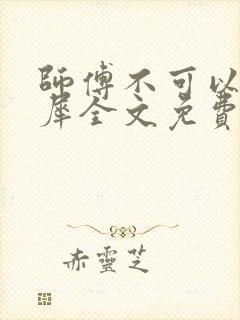 師傅不可以
犀全文免費
赤靈芝